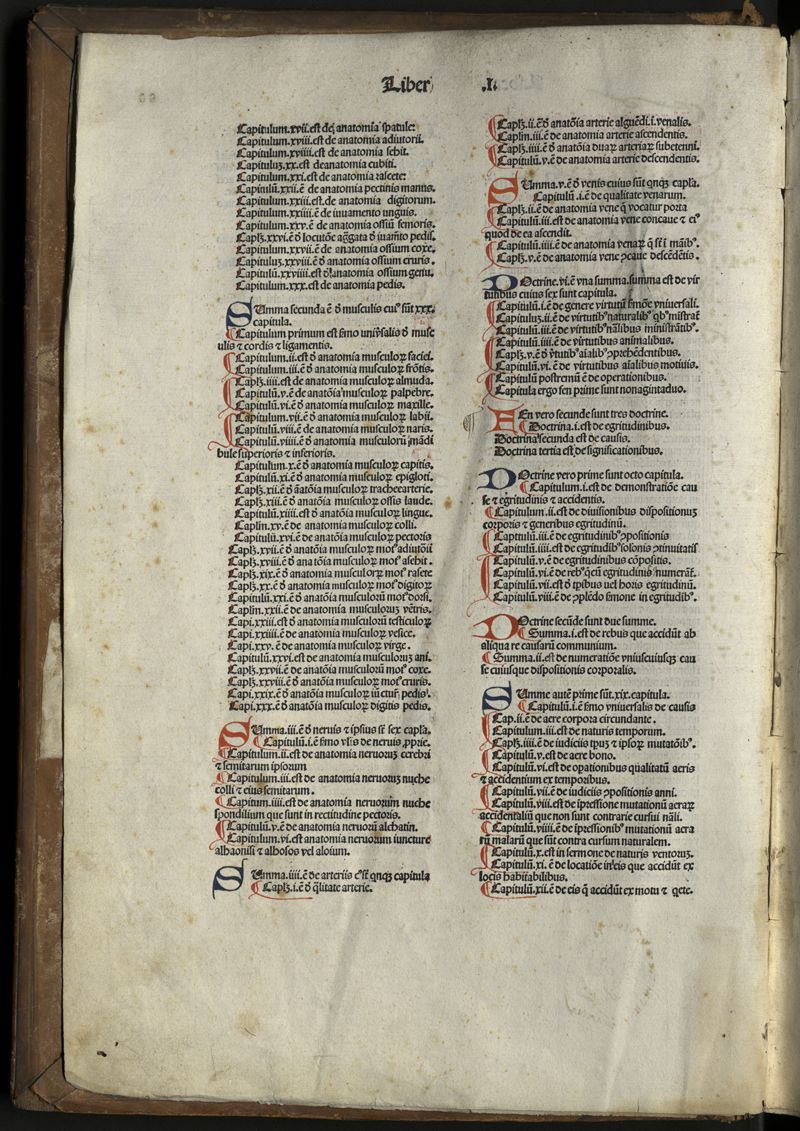 Liber .I.
Capitulum.xvii.est de anatomia spatule:
Capitulum.xviii.est de anatomia adiutorii.
Capitulum.xviiii.est de anatomia sehit.
Capituluz.xx.est de anatomia cubiti.
Capitulum.xxi.est de anatomia rascete:
Capitulū.xxii.ē de anatomia pectinis manus.
Capitulum.xxiii.est.de anatomia digitorum.
Capitulum.xxiiii.ē de iuuamento unguis.
Capitulum.xxv.ē de anatomia ossiū femoris.
Capłꝫ.xxvi.ē ð locutōe aggata ð iuamto pedis.
Capitulum.xxvii.ē de anatomia ossium coxe.
Capituluz.xxviii.ē ð anatomia ossium cruris.
Capitulū.xxviiii.est ð anatomia ossium genu.
Capitulum.xxx.est de anatomia pedis.
SUmma secunda ē ð musculis cuiꝰ sūt xxx.
capitula.
Capitulum primum est ſmo uniꝰsalis ð musc
ulis ⁊ cordis ⁊ ligamentis.
Capitulum.ii.est ð anatomia musculoꝝ faciei.
Capitulum.iii.ē ð anatomia musculoꝝ frōtis.
Capłꝫ.iiii.est de anatomia musculoꝝ almuda.
Capitulū.v.ē de anatōia musculoꝝ palpebre.
Capitulū.vi.ē ð anatomia musculoꝝ maxille.
Capitulum.vii.ē ð anatomia musculoꝝ labii.
Capitulū.viii.ē de anatomia musculoꝝ naris.
Capitulū.viiii.ē ð anatomia musculorū mādi
bule superioris ⁊ inferioris.
Capitulum.x.ē ð anatomia musculoꝝ capitis.
Capitulū.xi.ē ð anatomia musculoꝝ epigloti.
Capłꝫ.xii.ē ð āatōia musculoꝝ tracheearterie.
Capłꝫ.xiii.ē ð anatōia musculoꝝ ossis laude.
Capitulū.xiiii.est ð anatōia musculoꝝ lingue.
Caplm.xv.ē de anatomia musculoꝝ colli.
Capitulū.xvi.ē de anatōia musculoꝝ pectoris
Capłꝫ.xvii.ē ð anatōia musculoꝝ motꝰ adiutōii
Capłꝫ.xviii.ē ð ana tōia musculoꝝ motꝰ asehit.
Capłꝫ.xix.ē ð anatomia musculorꝝ motꝰ rasete
Capłꝫ.xx.ē ð anatomia musculoꝝ motꝰ digitoꝝ
Capitulū.xxi.ē ð anatōia musculorū motꝰ dorsi.
Caplm.xxii.ē de anatomia musculoruz vētris.
Capi.xxiii.est ð anatomia musculorū testiculoꝝ
Capi.xxiiii.ē de anatomia musculoꝝ vesice.
Capi.xxv.ē de anatomia musculoꝝ virge.
Capitulū.xxvi.est de anatomia musculoruz ani.
Capłꝫ.xxvii.ē de anatōia musculorū motꝰ coxe.
Capłꝫ.xxviii.ē ð anatōia musculoꝝ motꝰ cruris.
Capi.xxix.ē ð anatōia musculoꝝ iūctur pedis.
Capi.xxx.ē ð anatōia musculoꝝ digitis pedis.
SUmma.iii.ē ð neruis ⁊ ipsius sūt sex capła.
Capitulū.i.ē ſmo vlis de neruis ꝓprie.
Capitulum.ii.est de anatomia neruoruz cerebri
⁊ semitarum ipsorum
Capitulum.iii.est de anatomia neruoruz nuche
colli ⁊ eius semitarum.
Capitum.iiii.est de anatomia neruorum nuche
spondilium que sunt in rectitudine pectoris.
Capitulū.v.ē de anatomia neruorū alchatin.
Capitulum.vi.est anatomia neruorum iuncture
alhaonisi ⁊ alhosos vel aloium.
SUmma.iiii.ē de arteriis cꝰ sūt qnqꝫ capitula
Capłꝫ.i.ē ð qlitate arterie.
Capłꝫ.ii.ē ð anatōia arterie alguēdi.i.venalis.
Caplm.iii.ē de anatomia arterie ascendentis.
Capłꝫ.iiii.ē ð anatōia duaꝝ arteriaꝝ subetenni.
Capitulū.v.ē de anatomia arterie descendentis.
SUmma.v.ē ð venis cuius sūt qnqꝫ capła.
Capitulū.i.ē de qualitate venarum.
Capłꝫ.ii.ē de anatomia vene q̄ vocatur porta
Capitulū.iii.est de anatomia vene concaue ⁊ eiꝰ
quod de ea ascendit.
Capitulū.iiii.ē de anatomia venaꝝ q̄ sūt ī māibꝰ.
Capłꝫ.v.ē de anatomia vene ꝯcaue descēdētis.
DOctrine.vi.ē vna summa.summa est de vir
tutibus cuius sex sunt capitula.
Capitulū.i.ē de genere virtutū ſmōe vniuersali.
Capituluz.ii.ē de virtutibꝰ naturalibꝰ qbꝰ mīstrat̄
Capitulū.iii.ē de virtutibꝰ nālibus ministrātibꝰ.
Capitulū.iiii.ē de virtutibus animalibus.
Capłꝫ.v.ē ð ꝟtutibꝰ aīalibꝰ ꝯprehēdentibus.
Capitulū.vi.ē de virtutibus aīalibus motiuis.
Capitulū postremū ē de operationibus.
Capitula ergo fen prime sunt nonagintaduo.
FEn vero secunde sunt tres doctrine.
Doctrina.i.est de egritudinibus.
Doctrina secunda est de causis.
Doctrina tertia est de significationibus.
DOctrine vero prime sunt octo capitula.
Capitulum.i.est de demonstratiōe cau
se ⁊ egritudinis ⁊ accidentis.
Capitulum.ii.est de diuisionibus dispositionuz
corporis ⁊ generibus egritudinū.
Capitulū.iii.ē de egritudinibꝰ ꝯpositionis
Capitulū.iiii.est de egritudībꝰ solonis ꝯtinuitatis
Capitulū.v.ē de egritudinibus cōpositis.
Capitulū.vi.ē de rebꝰ q̄ cū egritudinis numerāt̄.
Capitulū.vii.est ð tpibus uel horis egritudinū.
Capitulū.viii.ē de ꝯplēdo ſmone in egritudībꝰ.
DOctrine secūde sunt due summe.
Summa.i.est de rebus que accidūt ab
aliqua re causarū communium.
Summa.ii.est de numeratiōe vniuscuiusqꝫ cau
se cuiusque dispositionis corporalis.
SUmme autē prime sūt.xix.capitula.
Capitulū.i.ē ſmo vniuersalis de causis
Cap.ii.ē de aere corpora circundante.
Capitulum.iii.est de naturis temporum.
Capłꝫ.iiii.ē de iudiciis tpuz ⁊ ipsoꝝ mutatōibꝰ.
Capitulū.v.est de aere bono.
Capitulū.vi.est de opationibus qualitatū aeris
⁊ accidentium ex temporibus.
Capitulū.vii.ē de iudiciis ꝯpositionis anni.
Capitulū.viii.est de īpressione mutationū aeraꝝ
accidentaliū que non sunt contrarie cursui nāli.
Capitulū.viiii.ē de īpressionibꝰ mutationū aera
rū malarū que sūt contra cursum naturalem.
Capitulū.x.est in sermone de naturis ventoruz.
Capitulū.xi.ē de locatiōe in eis que accidūt ex
locis habitabilibus.
Capitulū.xii.ē de eis q̄ accidūt ex motu ⁊ qete.